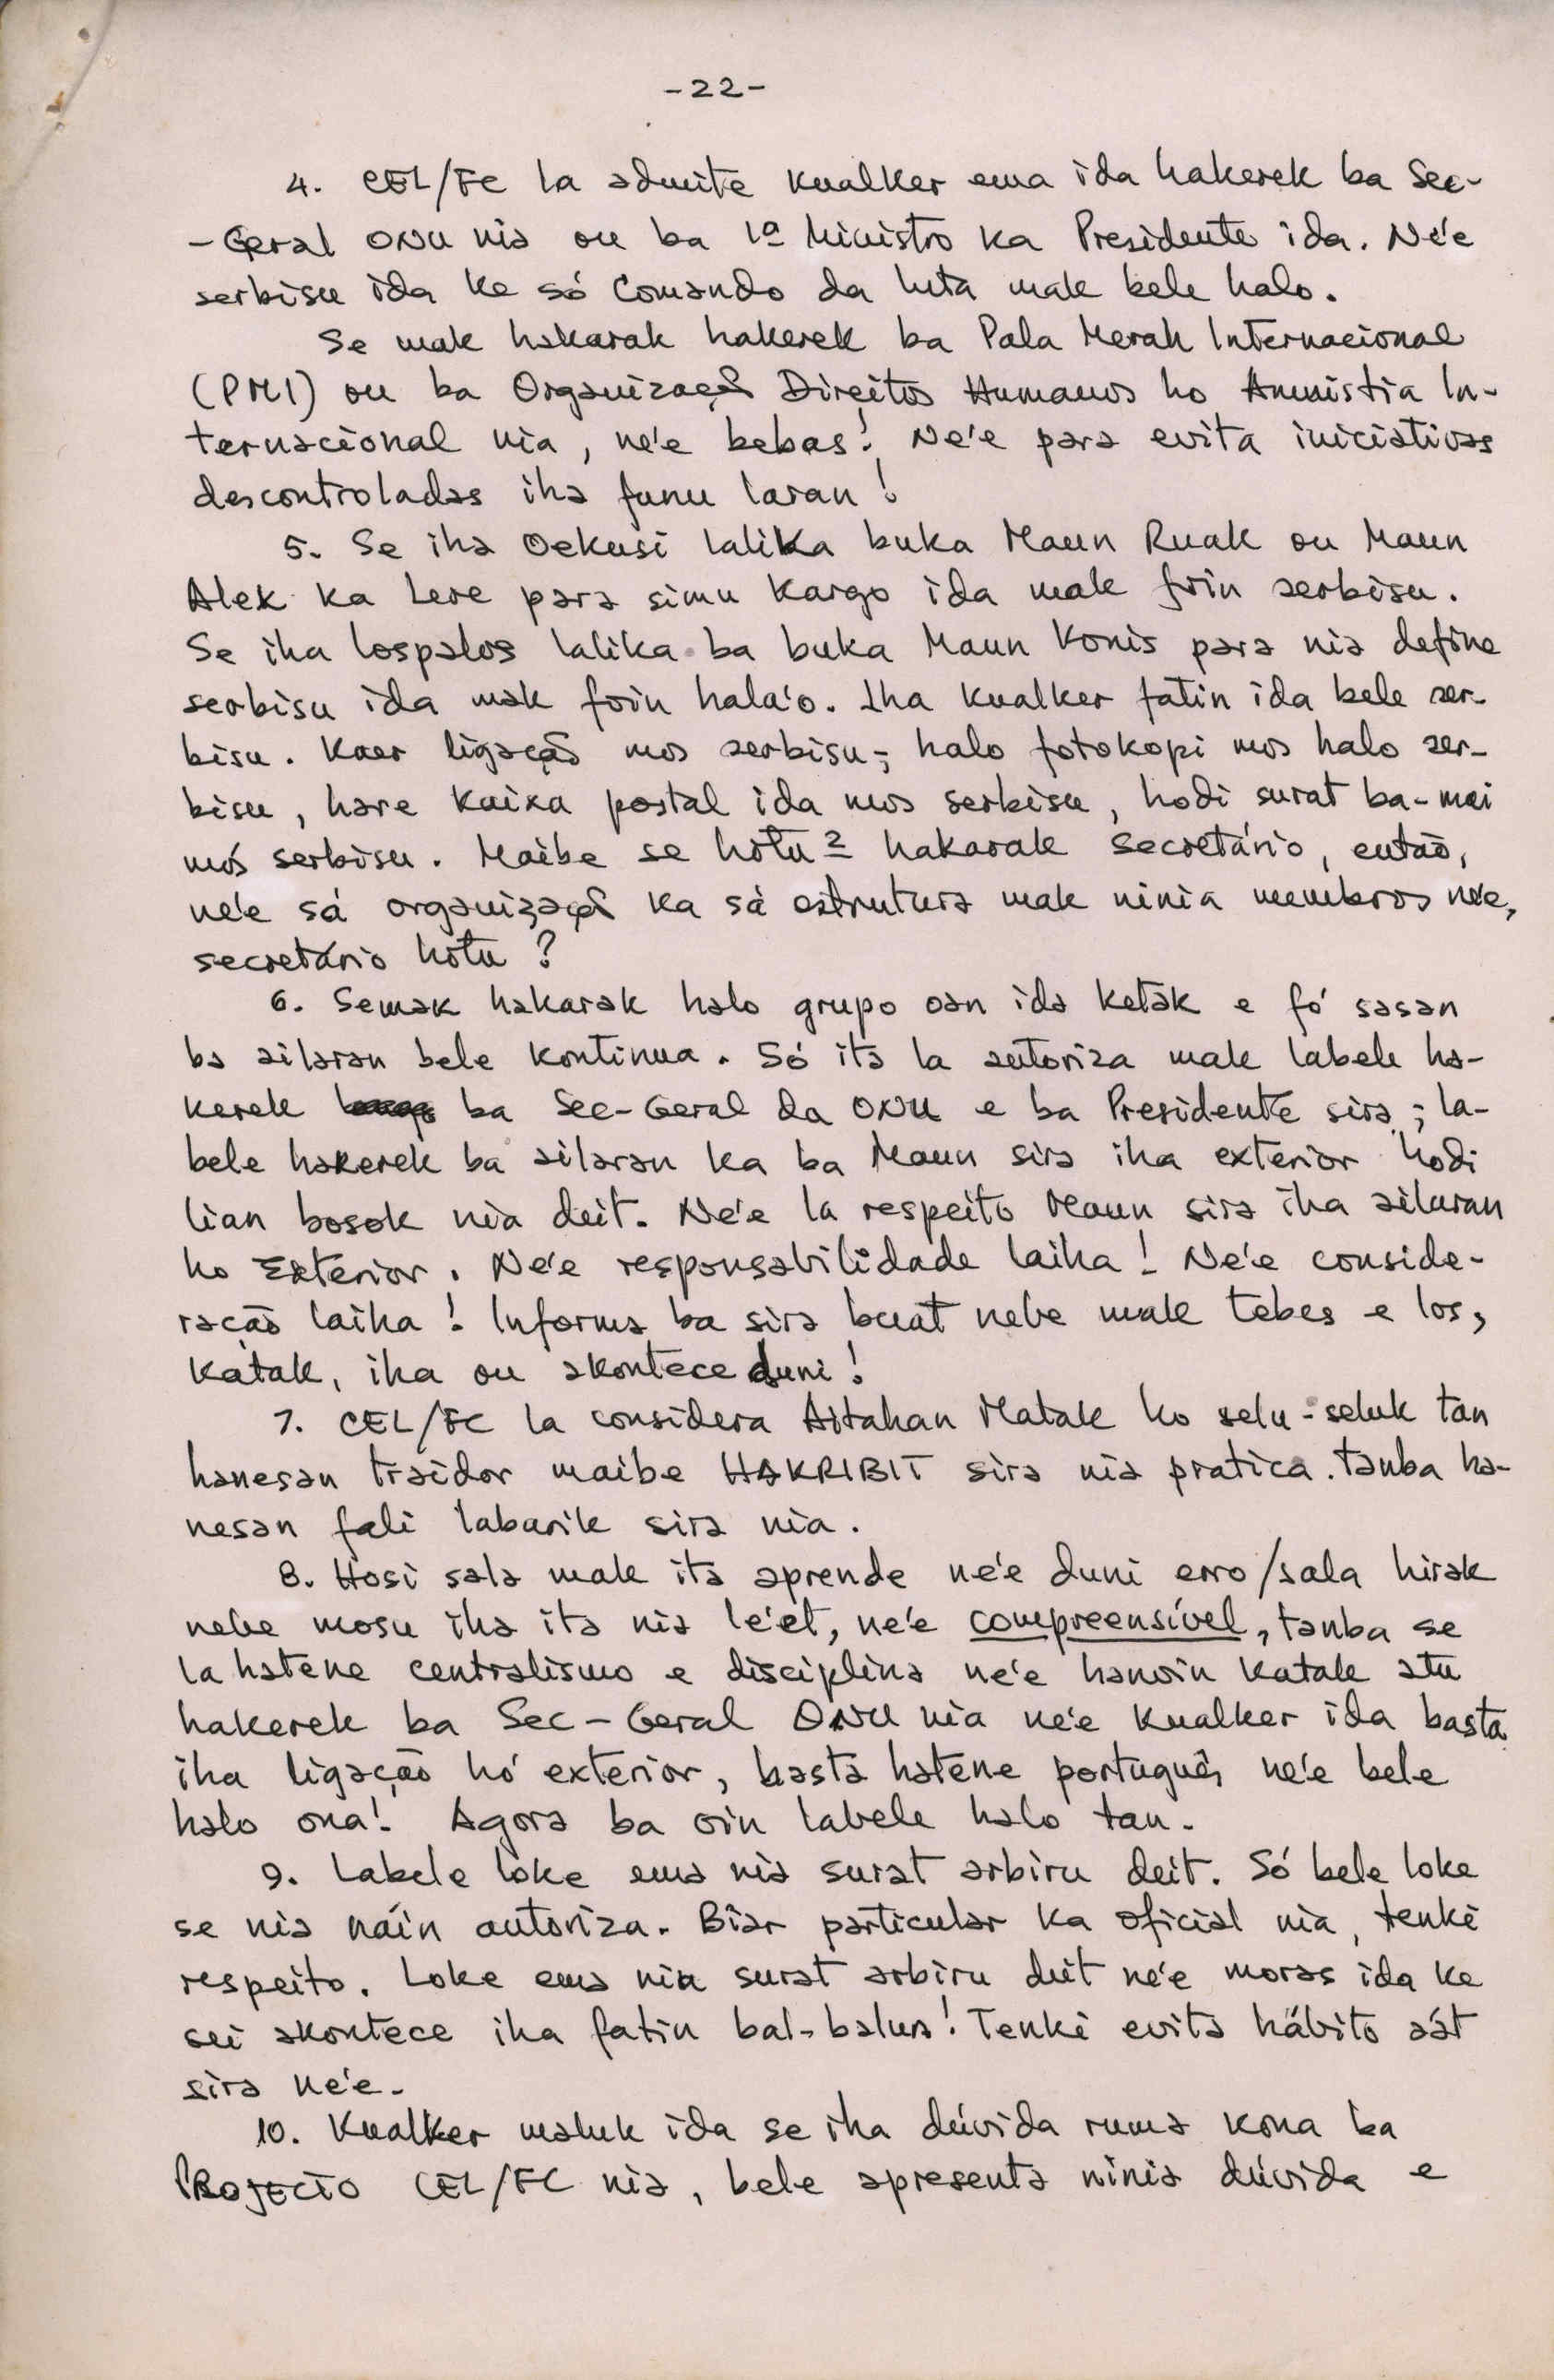 -22-
4. CEL/FC la admite kualker ema ida hakerek ba Sec-
-Geral ONU nia ou ba 1º Ministro ka Presidente ida. Ne'e
serbisu ida ke só Comando da luta mak bele halo.
Se mak hakarak hakerek ba Pala Merah Internacional
(PMI) ou ba Organização Direitos Humanos ho Amnistia In-
ternacional nia, ne'e bebas! Ne'e para evita iniciativas
descontroladas iha funu laran!
5. Se iha Oekusi lalika buka Maun Ruak ou Maun
Alek ka Lere para simu kargo ida mak foin serbisu.
Se iha Lospalos lalika ba buka Maun Konis para nia define
serbisu ida mak foin hala'o. Iha kualker fatin ida bele ser-
bisu. Kaer ligação mos serbisu; halo fotokopi mos halo ser-
bisu, hare kaixa postal ida mos serbisu, hodi surat ba-mai
mós serbisu. Maibe se hotu 2 hakarak secretário, então,
ne'e sá organização ka sá estrutura mak ninia membros ne'e,
secretário hotu?
6. Semak hakarak halo grupo oan ida ketak e fó sasan
ba ailaran bele kontinua. Só ita la autoriza mak labele ha-
kerek ba Sec-Geral da ONU e ba Presidente sira; la-
bele hakerek ba ailaran ka ba Maun sira iha exterior hodi
lian bosok nia deit. Ne'e la respeito Maun sira iha ailaran
ho Exterior. Ne'e responsabilidade laiha! Ne'e conside-
ração laiha! Informa ba sira buat nebe mak tebes e los,
katak, iha ou akontece duni!
7. CEL/FC la considera Aitahan Matak ho selu-seluk tan
hanesan traidor maibe HAKRIBIT sira nia pratica. Tanba ha-
nesan fali labarik sira nia.
8. Hosi sala mak ita aprende ne'e duni erro/sala hirak
nebe mosu iha ita nia le'et, ne'e compreensível, tanba se
la hatene centralismo e disciplina ne'e hanoin katak atu
hakerek ba Sec-Geral ONU nia ne'e kualker ida basta
iha ligação hó exterior, basta hatene português ne'e bele
halo ona! Agora ba oin labele halo tan.
9. Labele loke ema nia surat arbiru deit. Só bele loke
se nia náin autoriza. Biar particular ka oficial nia, tenki
respeito. Loke ema nia surat arbiru deit ne'e moras ida ke
sei akontece iha fatin bal-balun! Tenki evita hábito aát
sira ne'e.
10. Kualker maluk ida se iha dúvida ruma kona ba
PROJECTO CEL/FC nia, bele apresenta ninia dúvida e